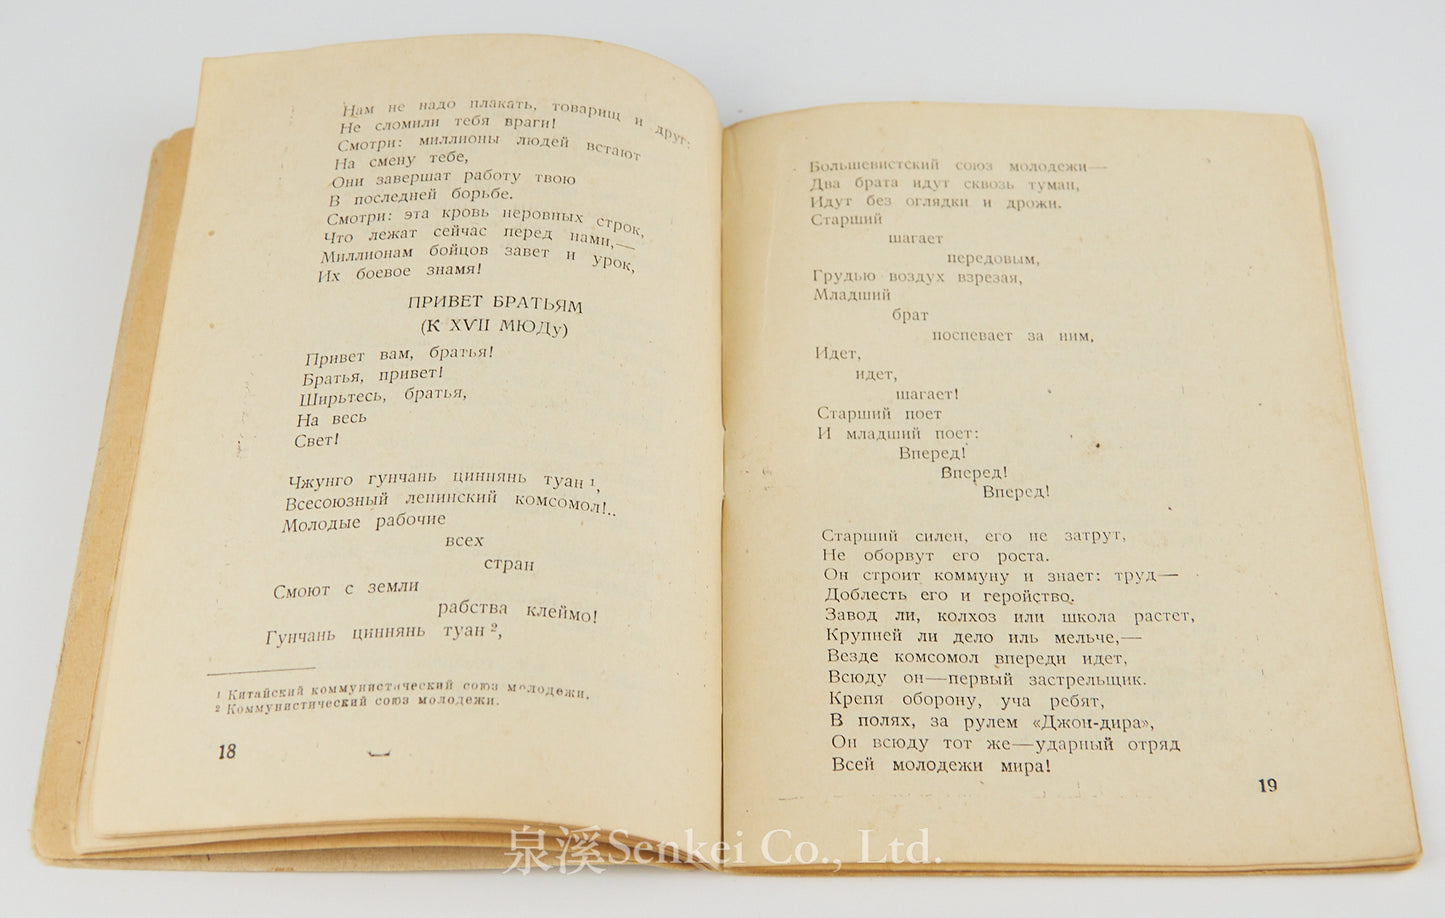 Нам не надо плакать, товарищ и друг:
Не сломили тебя враги!
Смотри: миллионы людей встают
На смену тебе,
Они завершат работу твою
В последней борьбе.
Смотри: эта кровь неровных строк,
Что лежат сейчас перед нами,—
Миллионам бойцов завет и урок,
Их боевое знамя!
ПРИВЕТ БРАТЬЯМ
(К XVII МЮДу)
Привет вам, братья!
Братья, привет!
Ширьтесь, братья,
На весь
Свет!
Чжунго гунчань циннянь туан ¹,
Всесоюзный ленинский комсомол!..
Молодые рабочие
всех
стран
Смоют с земли
рабства клеймо!
Гунчань циннянь туан ²,
¹ Китайский коммунистический союз молодежи.
² Коммунистический союз молодежи.
18
Большевистский союз молодежи—
Два брата идут сквозь туман,
Идут без оглядки и дрожи.
Старший
шагает
передовым,
Грудью воздух взрезая,
Младший
брат
поспевает за ним,
Идет,
идет,
шагает!
Старший поет
И младший поет:
Вперед!
Вперед!
Вперед!
Старший силен, его не затрут,
Не оборвут его роста.
Он строит коммуну и знает: труд—
Доблесть его и геройство.
Завод ли, колхоз или школа растет,
Крупней ли дело иль мельче,—
Везде комсомол впереди идет,
Всюду он—первый застрельщик.
Крепя оборону, уча ребят,
В полях, за рулем «Джон-дира»,
Он всюду тот же—ударный отряд
Всей молодежи мира!
19
泉溪Senkei Co., Ltd.